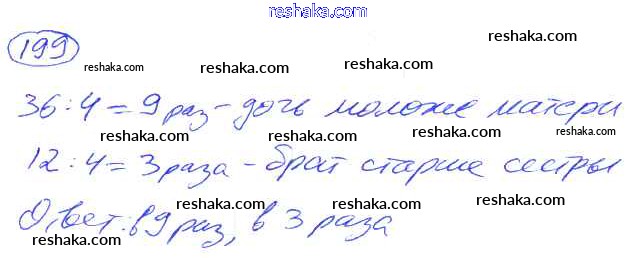 reshaka.com
199
reshaka.com reshaka.com reshaka.com
36:4=9 раз - дочь моложе матери
reshaka.com reshaka.com reshaka.com
12:4=3 раза - брат старше сестры
reshaka.com reshaka.com reshaka.com
Ответ: в 9 раз, в 3 раза
reshaka.com reshaka.com reshaka.com